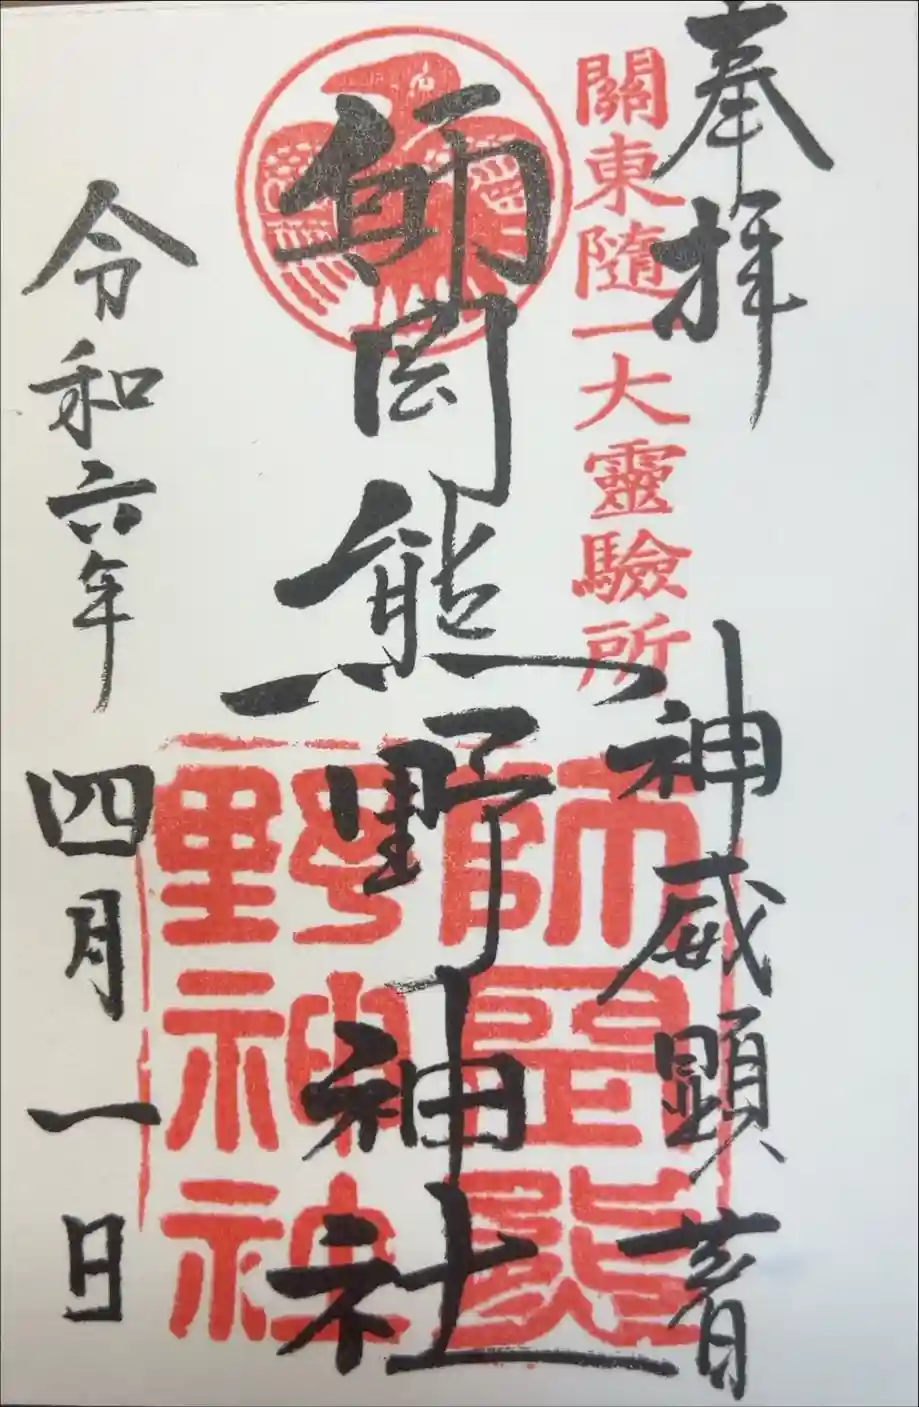 奉拝 神威顕著
關東隨一大靈驗所
師岡熊野神社
令和六年四月一日
師岡熊
野神社